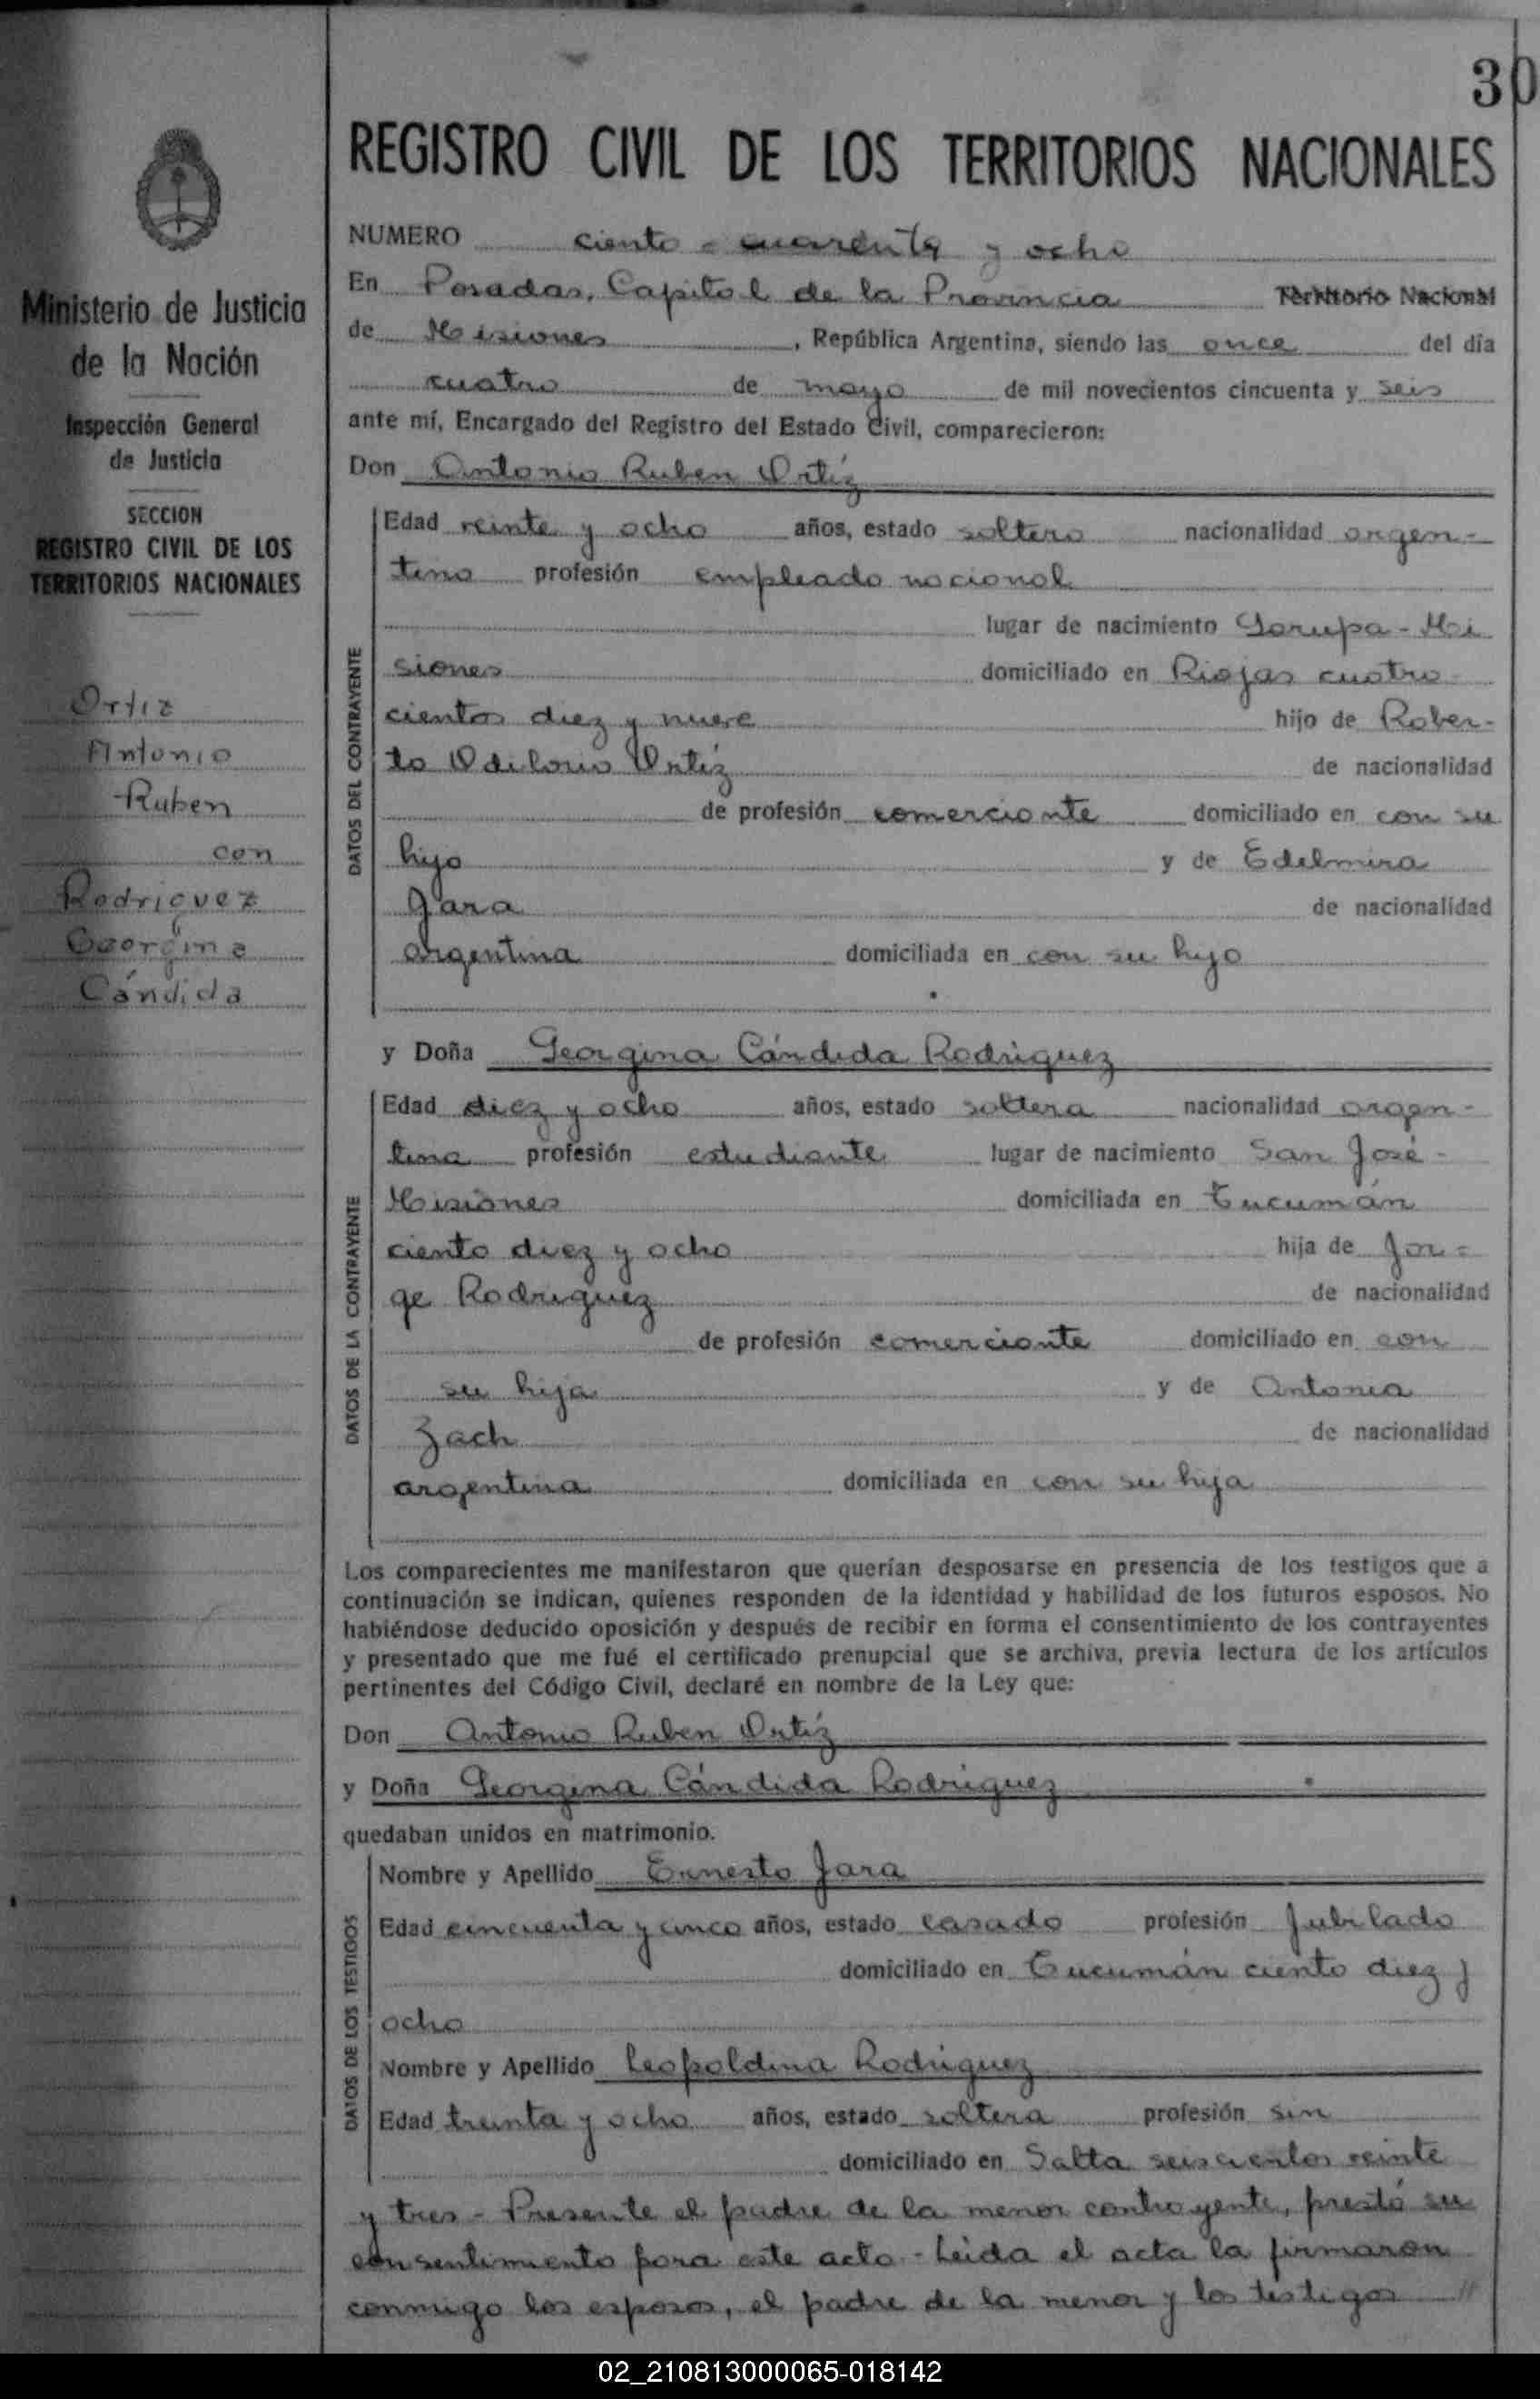 30
REGISTRO CIVIL DE LOS TERRITORIOS NACIONALES
Ministerio de Justicia
de la Nación
Inspección General
de Justicia
SECCION
REGISTRO CIVIL DE LOS
TERRITORIOS NACIONALES
Ortiz
Antonio
Ruben
con
Rodriguez
Georgina
Cándida
NUMERO ciento cuarenta y ocho
En Posadas, Capital de la Provincia Territorio Nacional
de Misiones, República Argentina, siendo las once del día
cuatro de mayo de mil novecientos cincuenta y seis
ante mí, Encargado del Registro del Estado Civil, comparecieron:
Don Antonio Ruben Ortíz
DATOS DEL CONTRAYENTE
Edad veinte y ocho años, estado soltero nacionalidad argen-
tino profesión empleado nacional
lugar de nacimiento Garupa - Mi
siones domiciliado en Riojas cuatro
cientos diez y nueve hijo de Rober-
to Odilorio Ortíz de nacionalidad
de profesión comerciante domiciliado en con su
hijo y de Edelmira
Jara de nacionalidad
argentina domiciliada en con su hijo
y Doña Georgina Cándida Rodriguez
DATOS DE LA CONTRAYENTE
Edad diez y ocho años, estado soltera nacionalidad argen-
tina profesión estudiante lugar de nacimiento San José -
Misiones domiciliada en Tucumán
ciento diez y ocho hija de Jor-
ge Rodriguez de nacionalidad
de profesión comerciante domiciliado en con
su hija y de Antonia
Zach de nacionalidad
argentina domiciliada en con su hija
Los comparecientes me manifestaron que querían desposarse en presencia de los testigos que a
continuación se indican, quienes responden de la identidad y habilidad de los futuros esposos. No
habiéndose deducido oposición y después de recibir en forma el consentimiento de los contrayentes
y presentado que me fué el certificado prenupcial que se archiva, previa lectura de los artículos
pertinentes del Código Civil, declaré en nombre de la Ley que:
Don Antonio Ruben Ortíz
y Doña Georgina Cándida Rodriguez
quedaban unidos en matrimonio.
DATOS DE LOS TESTIGOS
Nombre y Apellido Ernesto Jara
Edad cincuenta y cinco años, estado casado profesión Jubilado
domiciliado en Tucumán ciento diez y
ocho
Nombre y Apellido Leopoldina Rodriguez
Edad treinta y ocho años, estado soltera profesión sin
domiciliado en Salta seiscientos veinte
y tres - Presente el padre de la menor contrayente, prestó su
consentimiento para este acto - Leida el acta la firmaron
conmigo los esposos, el padre de la menor y los testigos //
02_210813000065-018142